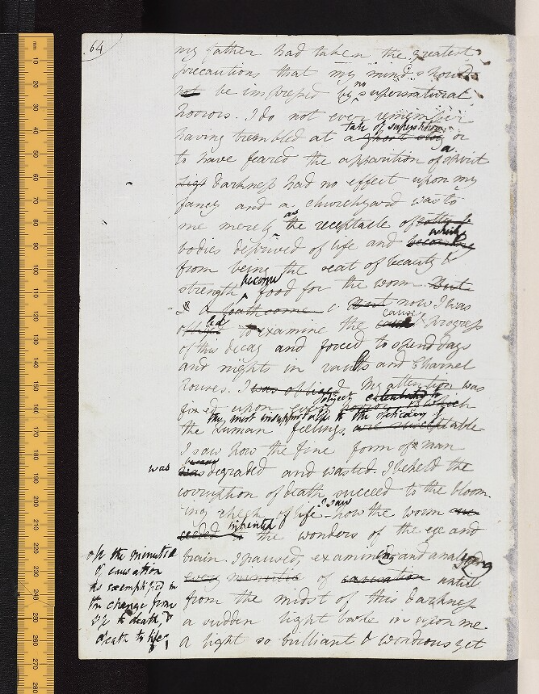 64
my father had taken the greatest
precautions that my mind should
not be impressed by no supernatural
horrors. I do not ever remember
tale of superstition
having trembled at a ghost story or
to have feared the apparition of a spirit
Darkness had no effect upon my
fancy and a churchyard was to
me merely as the receptacle of
which
bodies deprived of life and
from being the seat of beauty &
become
strength food for the worm
now I was
led cause &
to examine the progress
of this decay and forced to spend days
and night in vaults and charnel
houses. I was obliged my attention was
fixed upon every object
the most insupportable to the delicacy of
the human feelings
I saw how the fine form of man
was degraded and wasted I beheld the
corruption of death succeed to the bloom
I saw
ing cheek of life – how the worm
inherited the wonders of the eye and
brain. I paused, examining and analysing
every minutiæ of causation until
all the minutiæ
of causation
as exemplified in
the change from
life to death &
death to life,
from the midst of this darkness
a sudden light broke in upon me
a light so brilliant & wondrous yet